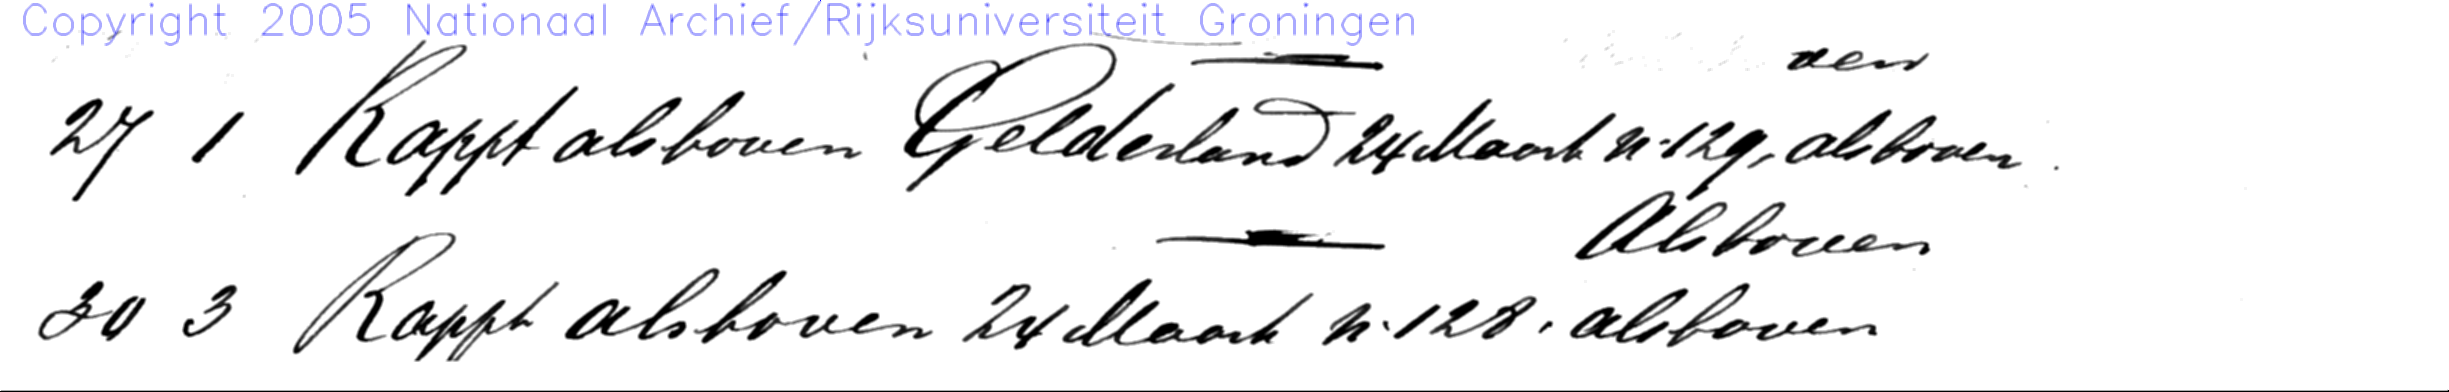 Copyright 2005 Nationaal Archief/Rijksuniversiteit Groningen
27 1 Rappt alsboven Gelderland 24 Maart n. 129, alsboven.
Alsboven
30 3 Rappt alsboven 24 Maart n. 128. alsboven